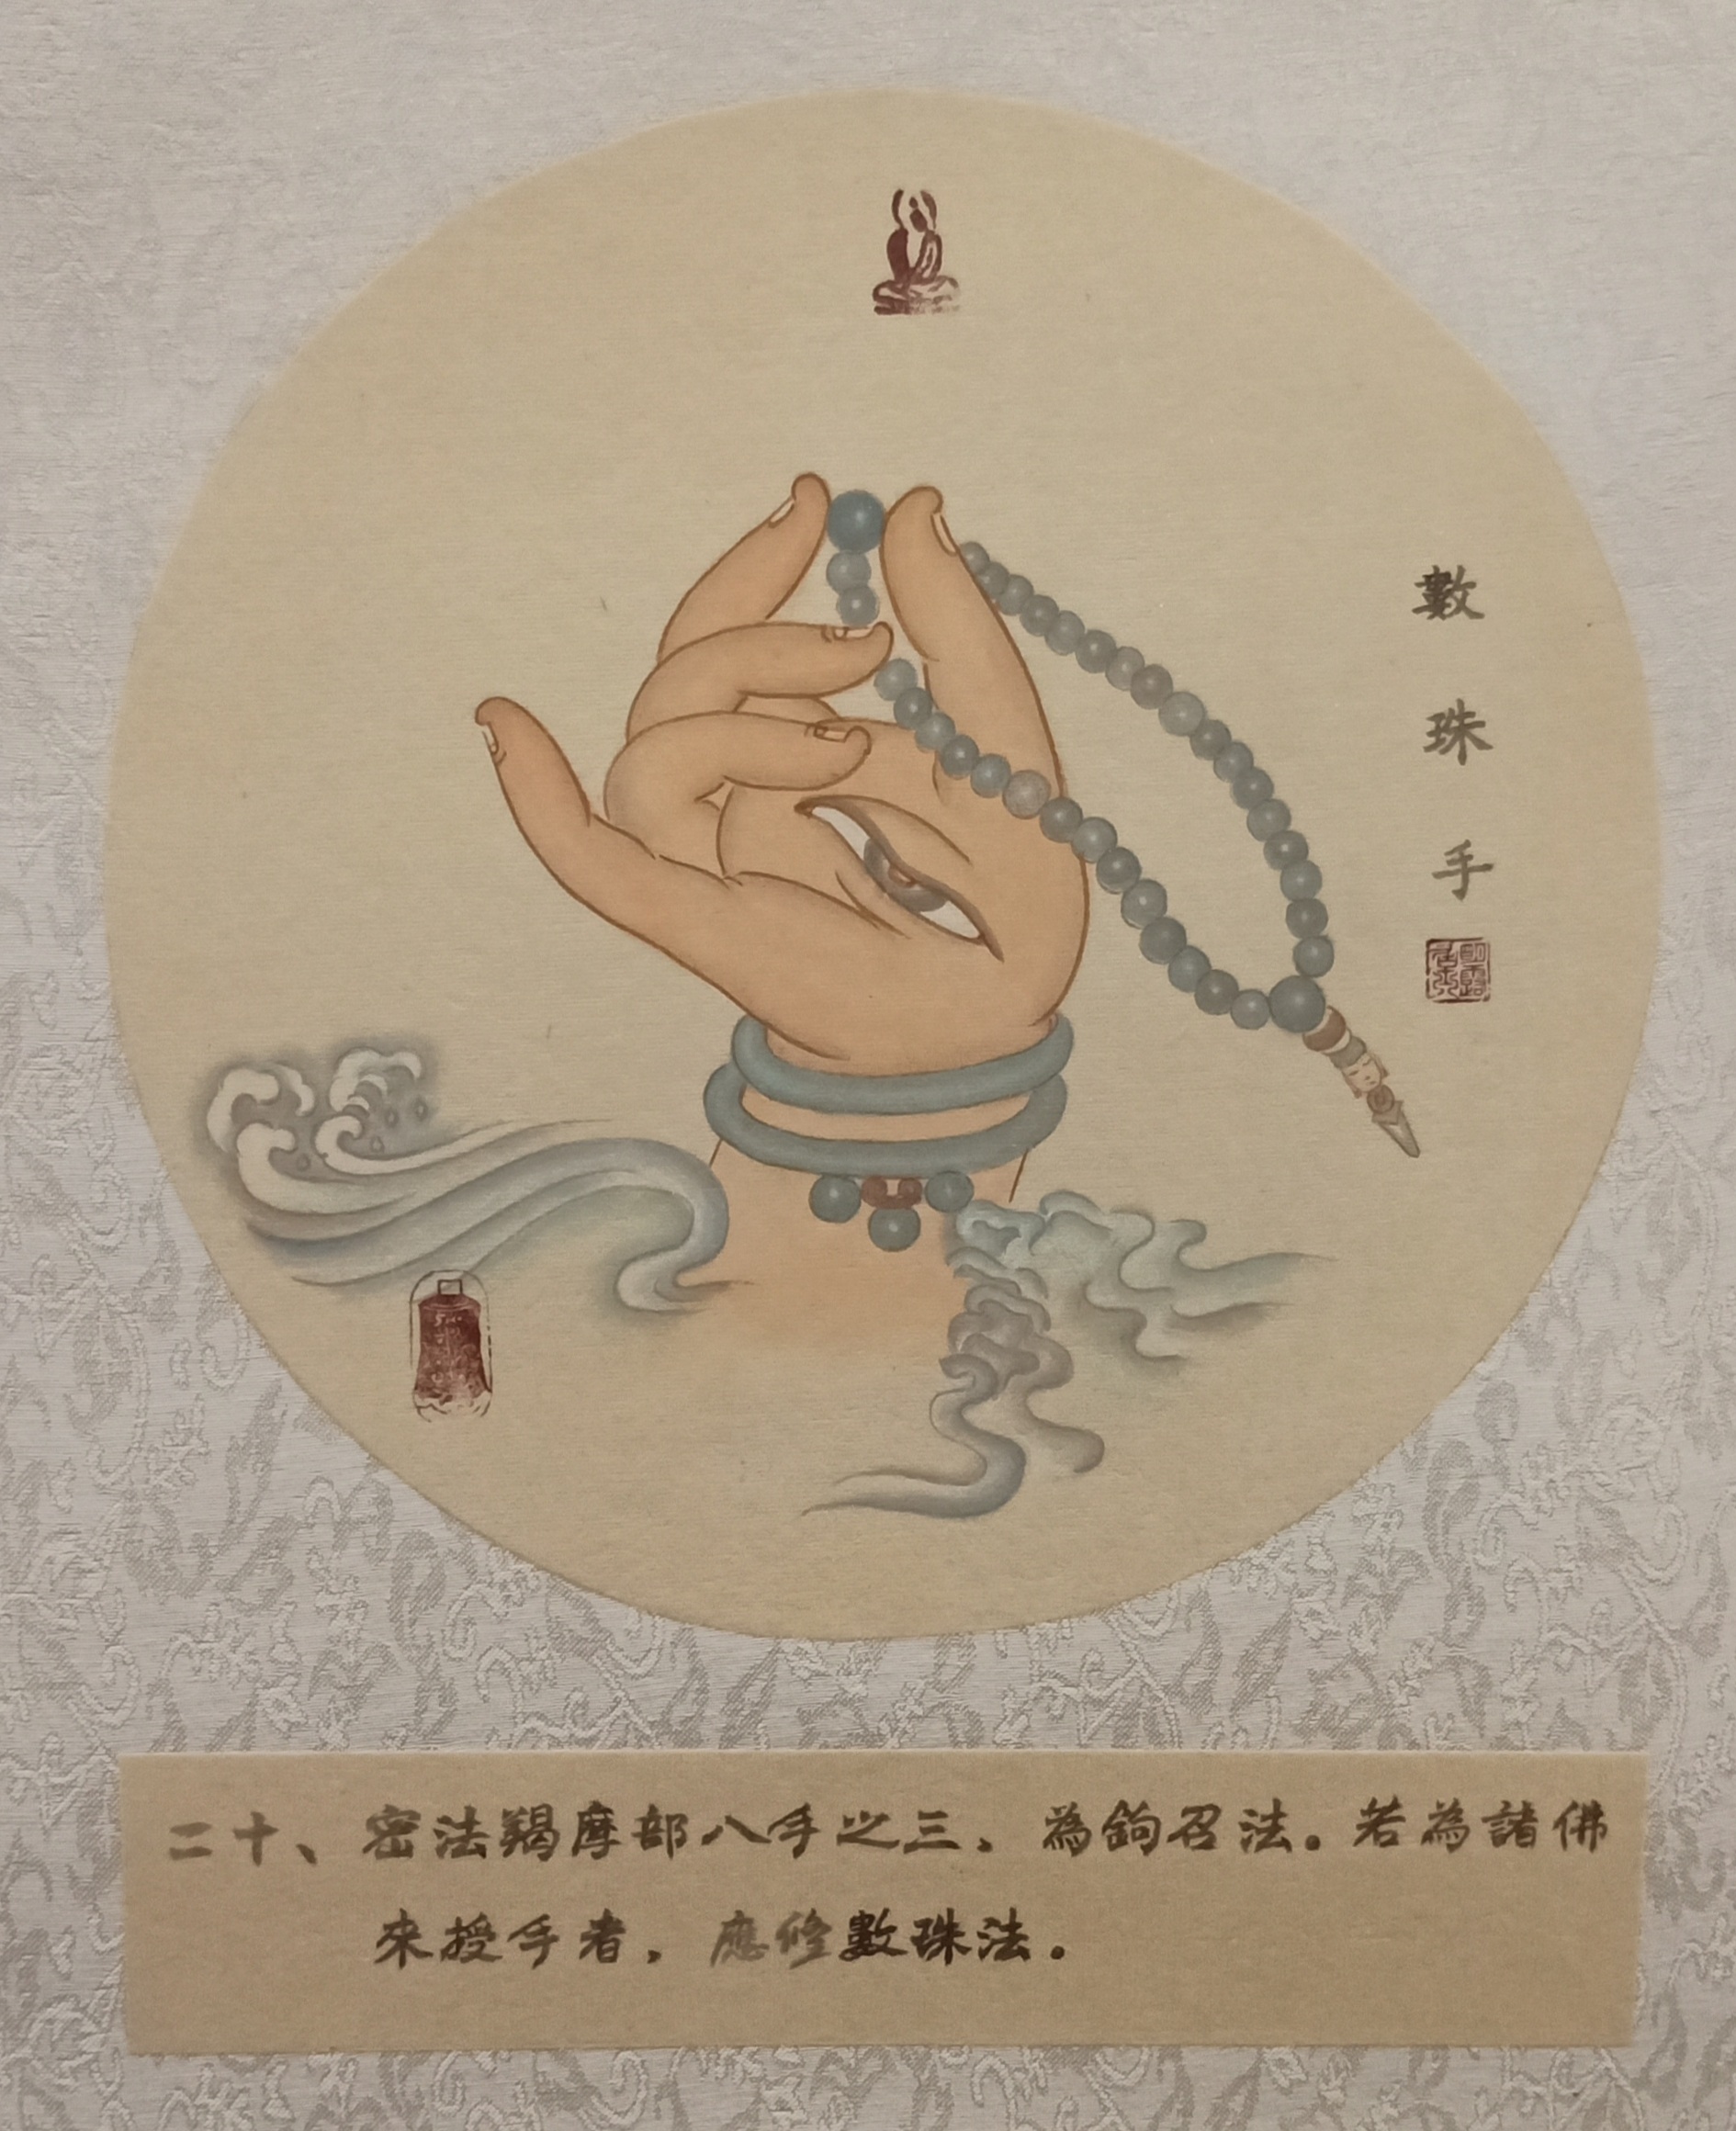 數珠手
二十、密法羯摩部八手之三、為鉤召法。若為諸佛
來授手者,應修數珠法。